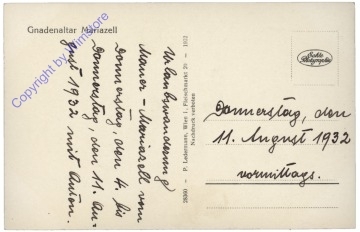 Gnadenaltar Mariazell
Copyright by ansichtskartenhändler.com
Urlaubswanderung
Mauer-Mariazell vom
Donnerstag, den 4. bis
Donnerstag, den 11. Au-
gust 1932 mit Anton.
26260 - P. Ledermann, Wien I., Fleischmarkt 20 - 1932
Nachdruck verboten
Echte
Photographie
Donnerstag, den
11. August 1932
vormittags.